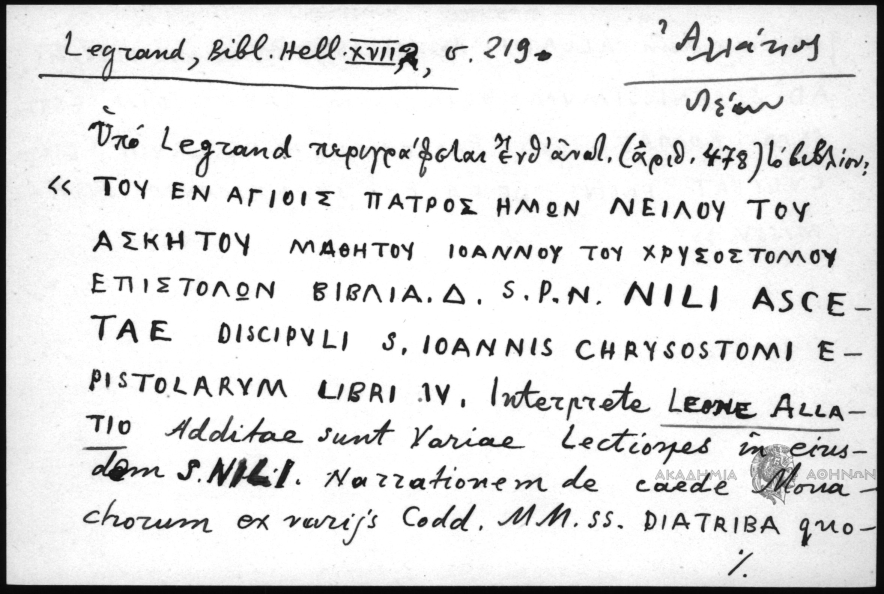 Legrand, Bibl. Hell. XVII 2, σ. 219.
Ἀλλάτιος
Λέων
Ὑπό Legrand περιγράφεται ἐνθ' ἀνωτ. (ἀριθ. 478) τό βιβλίον:
« ΤΟΥ ΕΝ ΑΓΙΟΙΣ ΠΑΤΡΟΣ ΗΜΩΝ ΝΕΙΛΟΥ ΤΟΥ
ΑΣΚΗΤΟΥ ΜΑΘΗΤΟΥ ΙΟΑΝΝΟΥ ΤΟΥ ΧΡΥΣΟΣΤΟΜΟΥ
ΕΠΙΣΤΟΛΩΝ ΒΙΒΛΙΑ. Δ. S. P. N. NILI ASCE-
TAE DISCIPVLI S. IOANNIS CHRYSOSTOMI E-
PISTOLARVM LIBRI IV. Interprete LEONE ALLA-
TIO Additae sunt Variae Lectiones in eius-
dem S. NILI. Narrationem de caede Mona-
chorum ex varijs Codd. MM. ss. DIATRIBA quo-
./.
ΑΚΑΔΗΜΙΑ ΑΘΗΝΩΝ